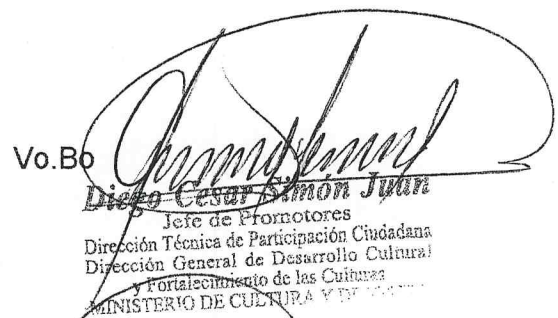 Vo.Bo
Diego Cesar Simón Juan
Jefe de Promotores
Dirección Técnica de Participación Ciudadana
Dirección General de Desarrollo Cultural
y Fortalecimiento de las Culturas
MINISTERIO DE CULTURA Y DE